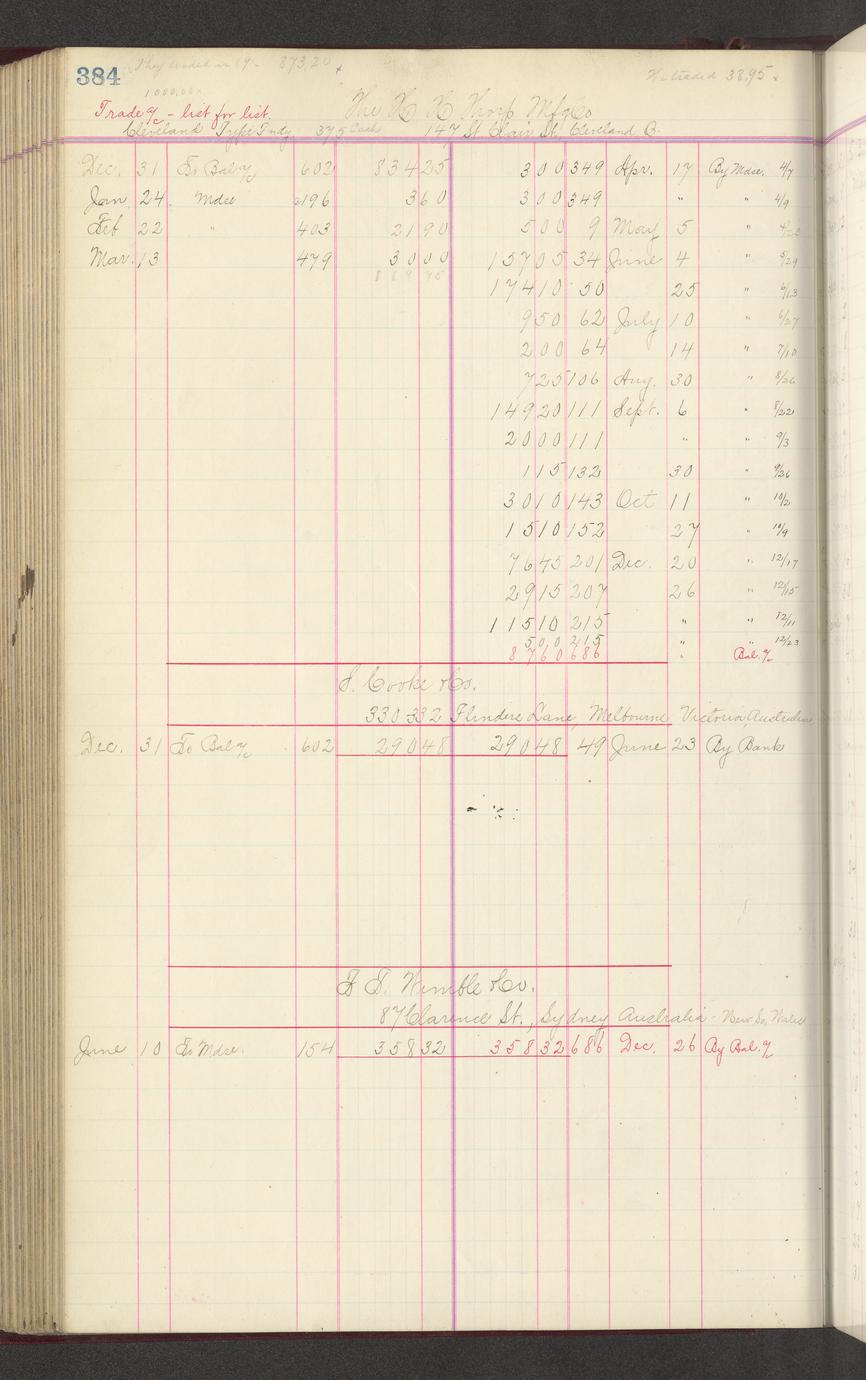 384 They traded in 19 - 873,20
We traded 38,95
1000,00
Trade a/c - list for list. The H H Thorp Mfg Co
Cleveland Type Fndy 375 Cash 147 St Clair St, Cleveland O.
Dec. 31 To Bal a/c 602 834 25 3 00 349 Apr. 17 By Mdse. 4/7
Jan. 24 Mdse 196 3 60 3 00 349 " " 4/9
Feb 22 " 403 21 90 5 00 9 May 5 "
Mar. 13 479 30 00 157 05 34 June 4 " 5/29
889 75 174 10 50 25 " 6/13
9 50 62 July 10 " 6/27
2 00 64 14 " 7/10
7 25 106 Aug. 30 " 8/26
149 20 111 Sept. 6 " 8/22
20 00 111 " " 9/3
1 15 132 30 " 9/26
30 10 143 Oct 11 " 10/2
15 10 152 27 " 10/9
76 45 201 Dec. 20 " 12/17
29 15 207 26 " 12/15
115 10 215 " " 12/11
5 00 215 " " 12/23
87 60 686 " Bal. a/c
J. Cooke & Co.
330-332 Flinders Lane, Melbourne, Victoria, Australia
Dec. 31 To Bal a/c 602 290 48 290 48 49 June 23 By Bank
F. T. Wimble & Co.
87 Clarence St., Sydney Australia - New So. Wales
June 10 To Mdse. 154 358 32 358 32 686 Dec. 26 By Bal. a/c